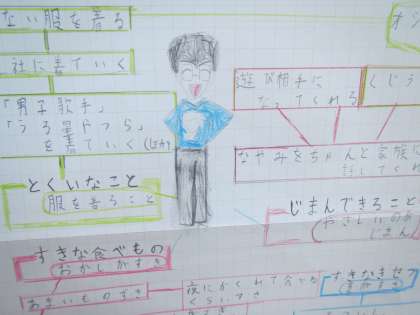 ない服を着る
社に着ていく
「男子歌手」
「うる星やつら」
を着ていく
とくいなこと
服を着ること
すきな食べもの
おかしがすき
あまいものずき
遊び相手に
なってくれる
くじ
なやみをちゃんと家族に
話してくれ
じまんできること
やさしいのが
じまん
夜にかくれて
くらいすき
すきなきせつ